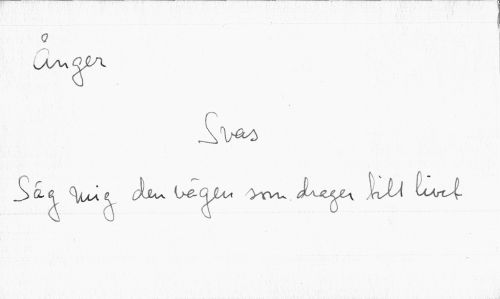 Ånger
Svas
Säg mig den vägen som drager till livet